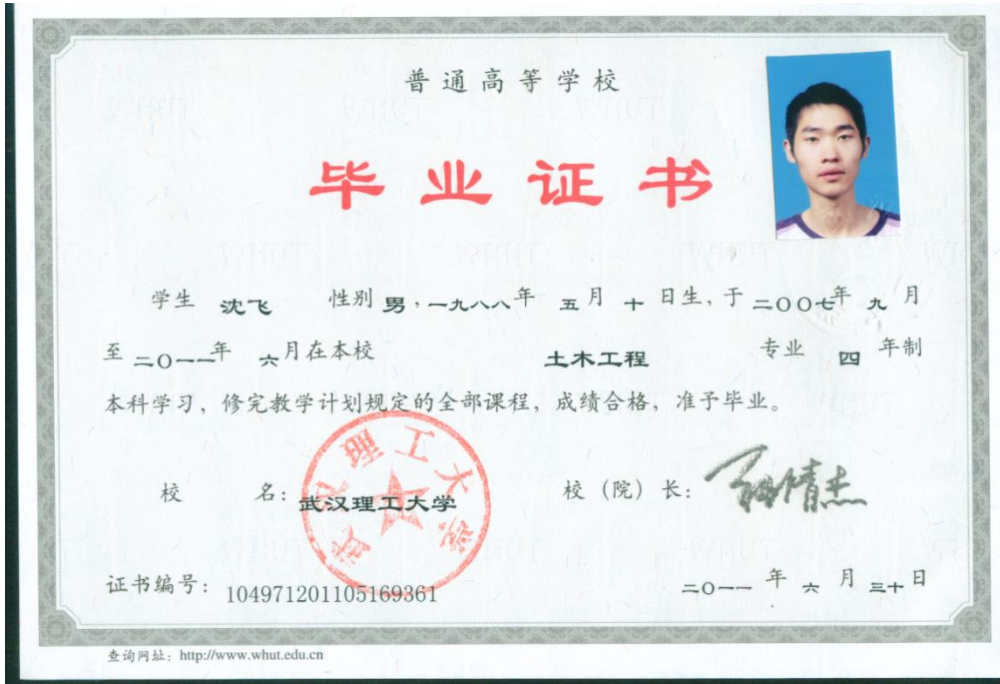 普通高等学校
毕业证书
学生 沈飞 性别 男，一九八八年 五月 十 日生，于 二〇〇七年 九 月
至 二〇一一年 六月在本校 土木工程 专业 四 年制
本科学习，修完教学计划规定的全部课程，成绩合格，准予毕业。
武汉理工大学
校 名：武汉理工大学 校（院）长：
证书编号：104971201105169361 二〇一一 年 六 月 三十日
查询网址：http://www.whut.edu.cn